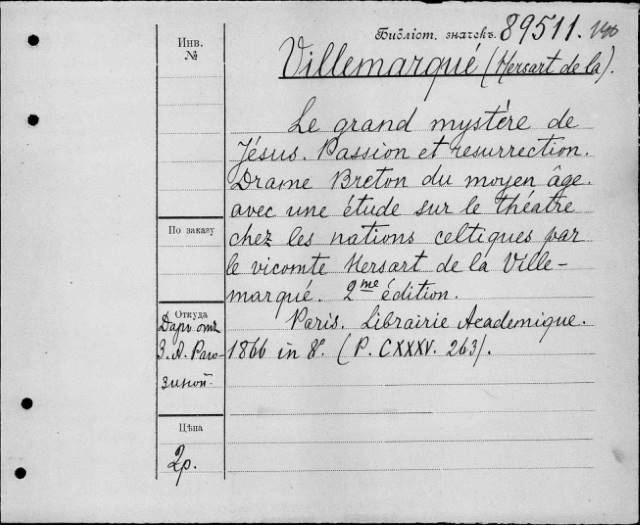 Библіот. значекъ. 89511.
Инв.
№
Villemarqué (Hersart de la).
Le grand mystère de
Jésus. Passion et resurrection.
Drame Breton du moyen âge.
avec une étude sur le théatre
По заказу
chez les nations celtiques par
le vicomte Hersart de la Ville-
marqué. 2me édition.
Откуда
Paris. Librairie Academique.
Даръ отъ
З. А. Раго-
1866 in 8°. (P. CXXXV. 263).
зиной
Цѣна
2р.